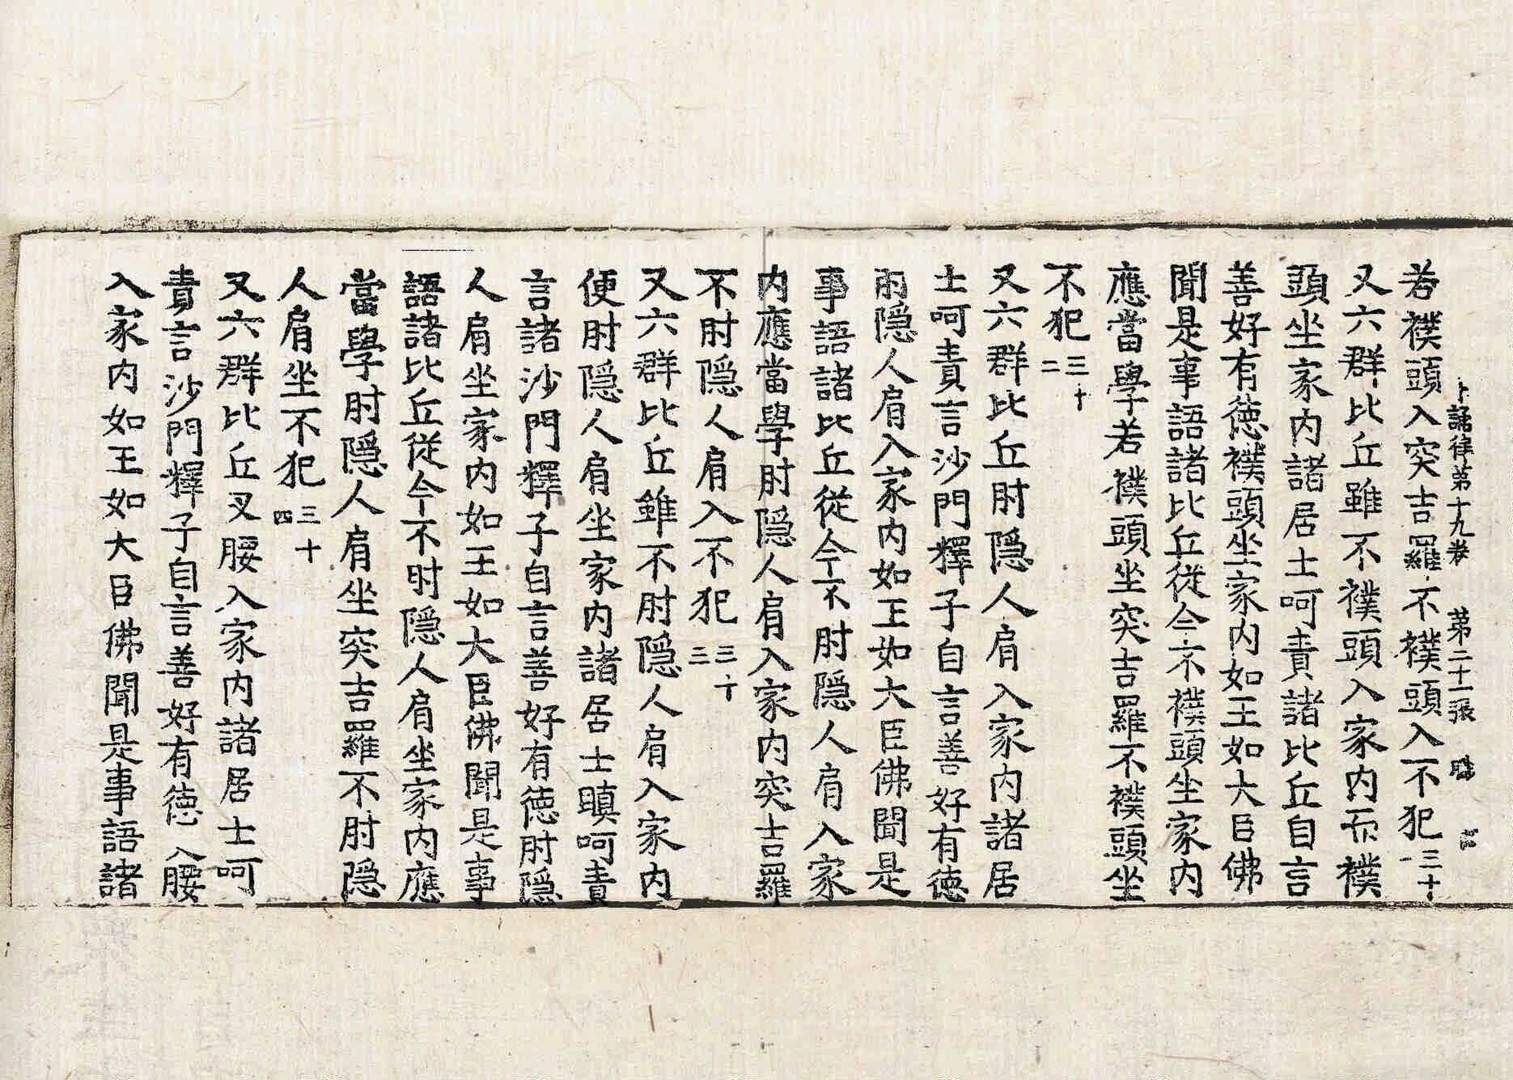 十誦律第十九卷 第二十一張
若襆頭入突吉羅不襆頭入不犯三十一
又六群比丘雖不襆頭入家內而襆
頭坐家內諸居士呵責諸比丘自言
善好有德襆頭坐家內如王如大臣佛
聞是事語諸比丘從今不襆頭坐家內
應當學若襆頭坐突吉羅不襆頭坐
不犯三十二
又六群比丘肘隱人肩入家內諸居
士呵責言沙門釋子自言善好有德
而隱人肩入家內如王如大臣佛聞是
事語諸比丘從今不肘隱人肩入家
內應當學肘隱人肩入家內突吉羅
不肘隱人肩入不犯三十三
又六群比丘雖不肘隱人肩入家內
便肘隱人肩坐家內諸居士瞋呵責
言諸沙門釋子自言善好有德肘隱
人肩坐家內如王如大臣佛聞是事
語諸比丘從今不肘隱人肩坐家內應
當學肘隱人肩坐突吉羅不肘隱
人肩坐不犯三十四
又六群比丘叉腰入家內諸居士呵
責言沙門釋子自言善好有德入腰
入家內如王如大臣佛聞是事語諸